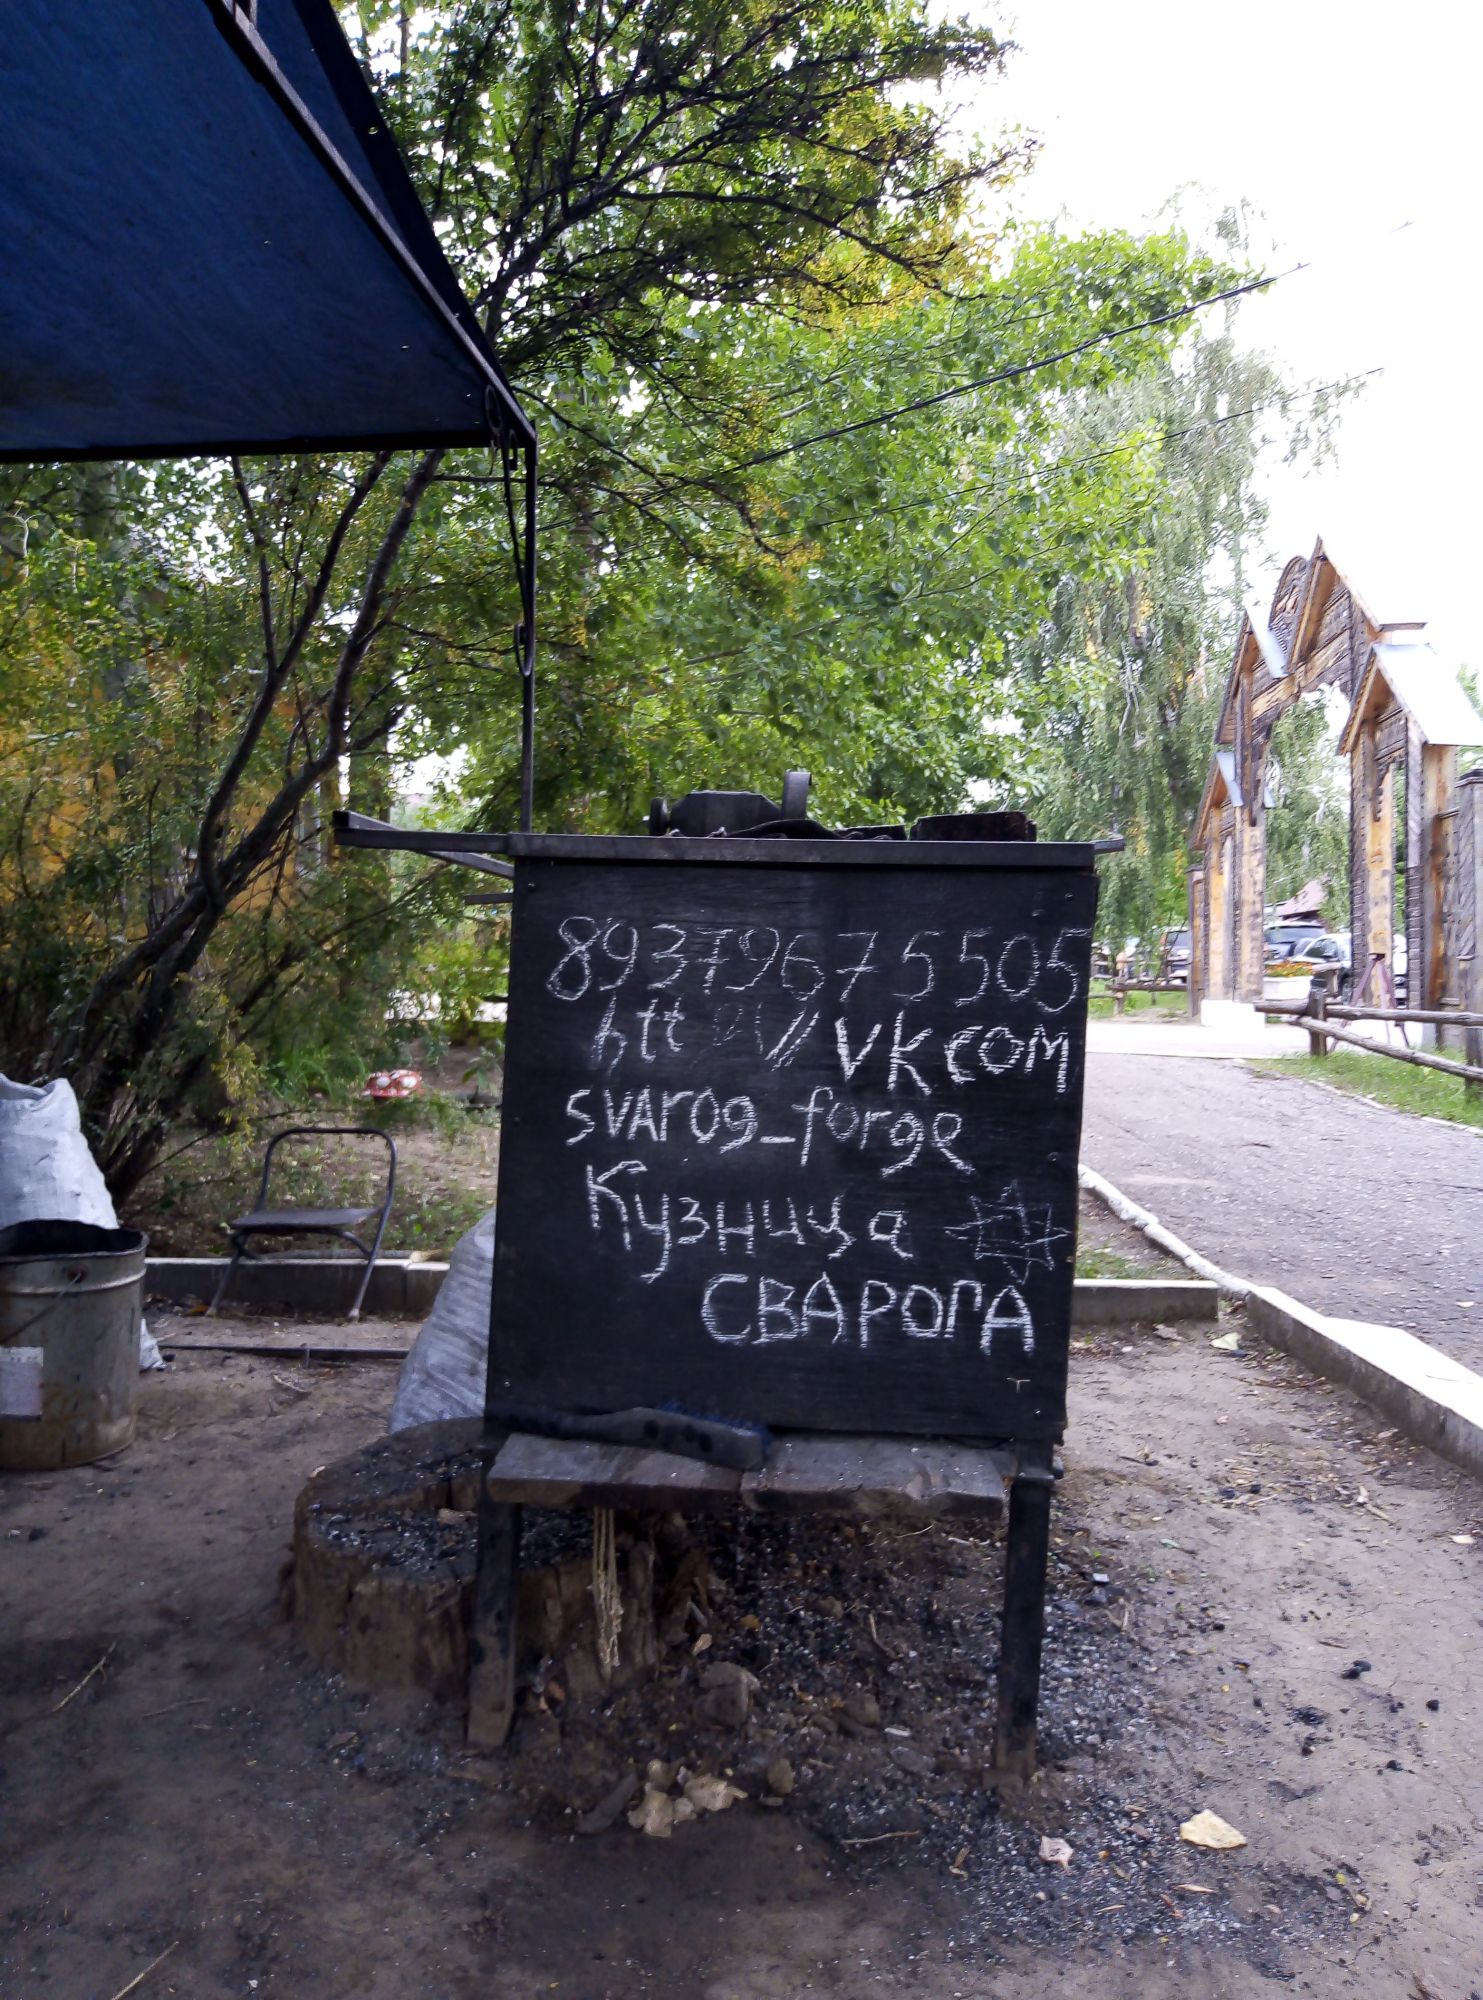 89379675505
htt p:// vk com
svarog_forge
Кузница
СВАРОГА